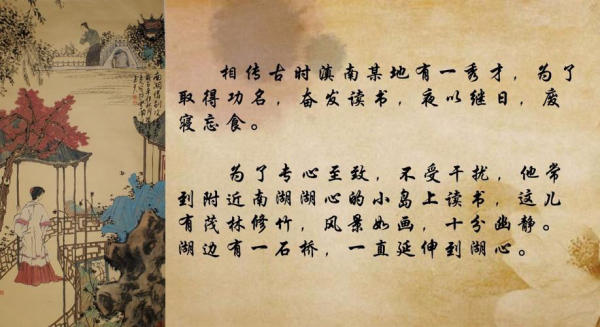 相传古时滇南某地有一秀才，为了
取得功名，奋发读书，夜以继日，废
寝忘食。
为了专心至致，不受干扰，他常
到附近南湖湖心的小岛上读书，这儿
有茂林修竹，风景如画，十分幽静。
湖边有一石桥，一直延伸到湖心。